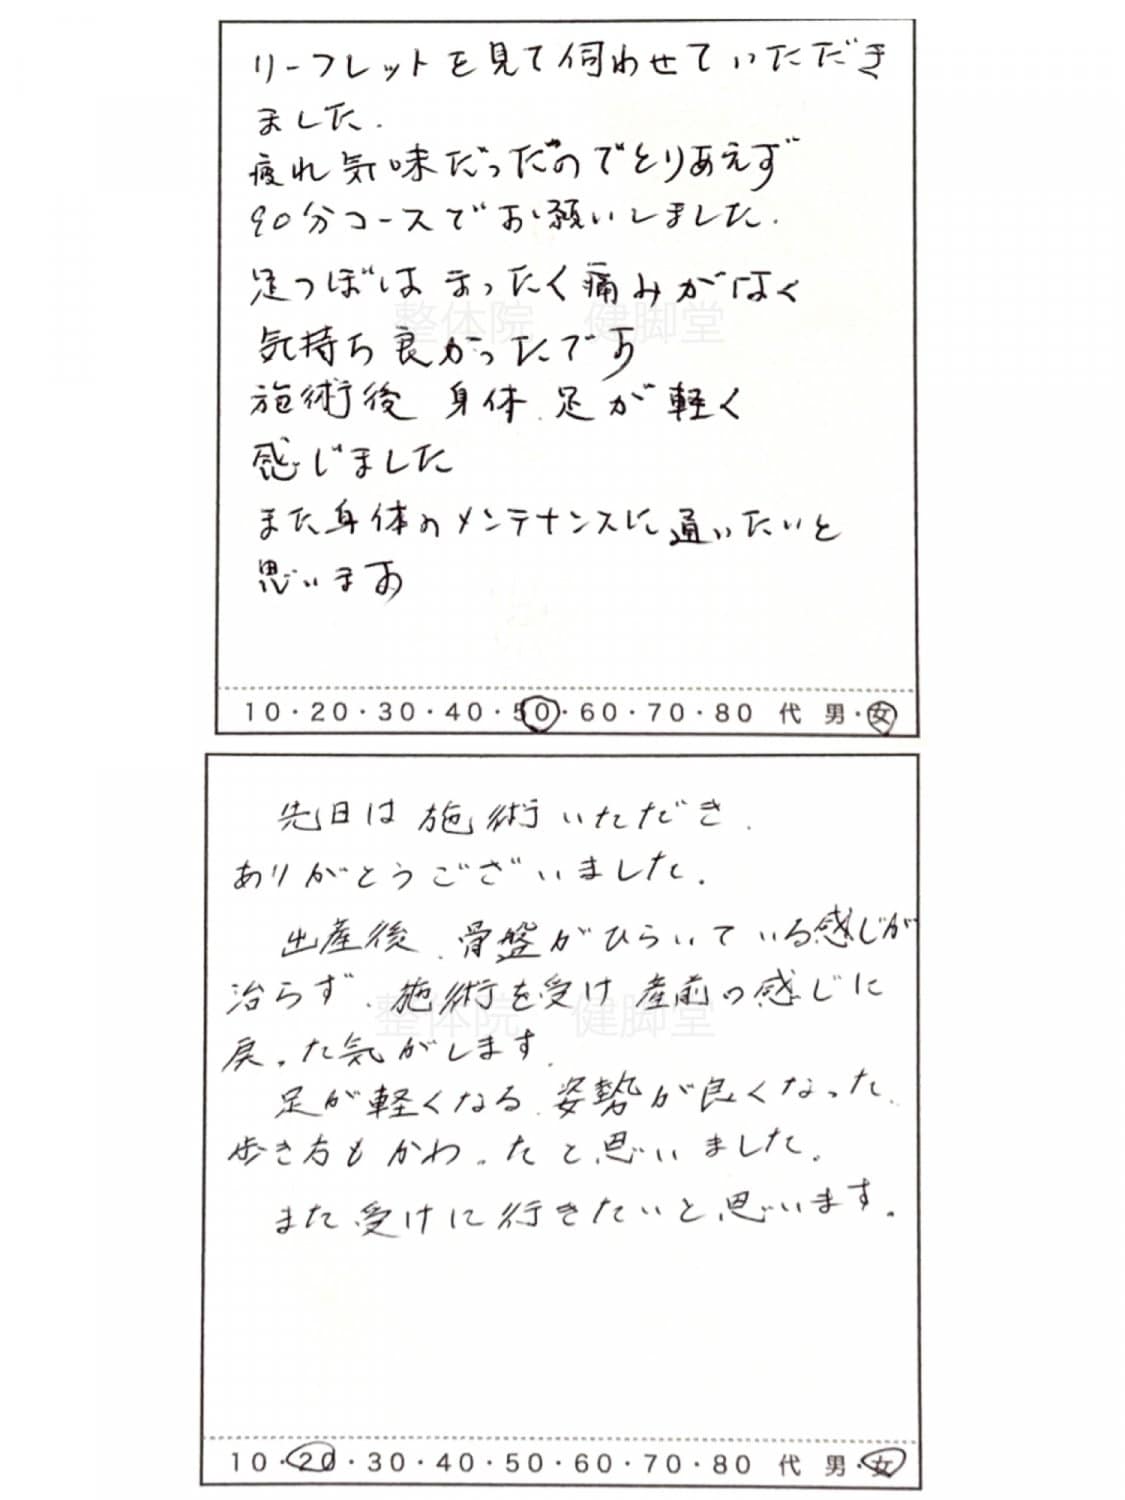 リーフレットを見て伺わせていただき
ました.
疲れ気味だったのでとりあえず
90分コースでお願いしました.
足つぼはまったく痛みがなく
整体院 健脚堂
気持ち良かったです
施術後 身体、足が軽く
感じました
また身体のメンテナンスに通いたいと
思います
10・20・30・40・50・60・70・80 代 男・女
先日は施術いただき、
ありがとうございました.
出産後、骨盤がひらいている感じが
治らず、施術を受け産前の感じに
整体院 健脚堂
戻った気がします.
足が軽くなる、姿勢が良くなった、
歩き方もかわったと思いました。
また受けに行きたいと思います。
10・20・30・40・50・60・70・80 代 男・女